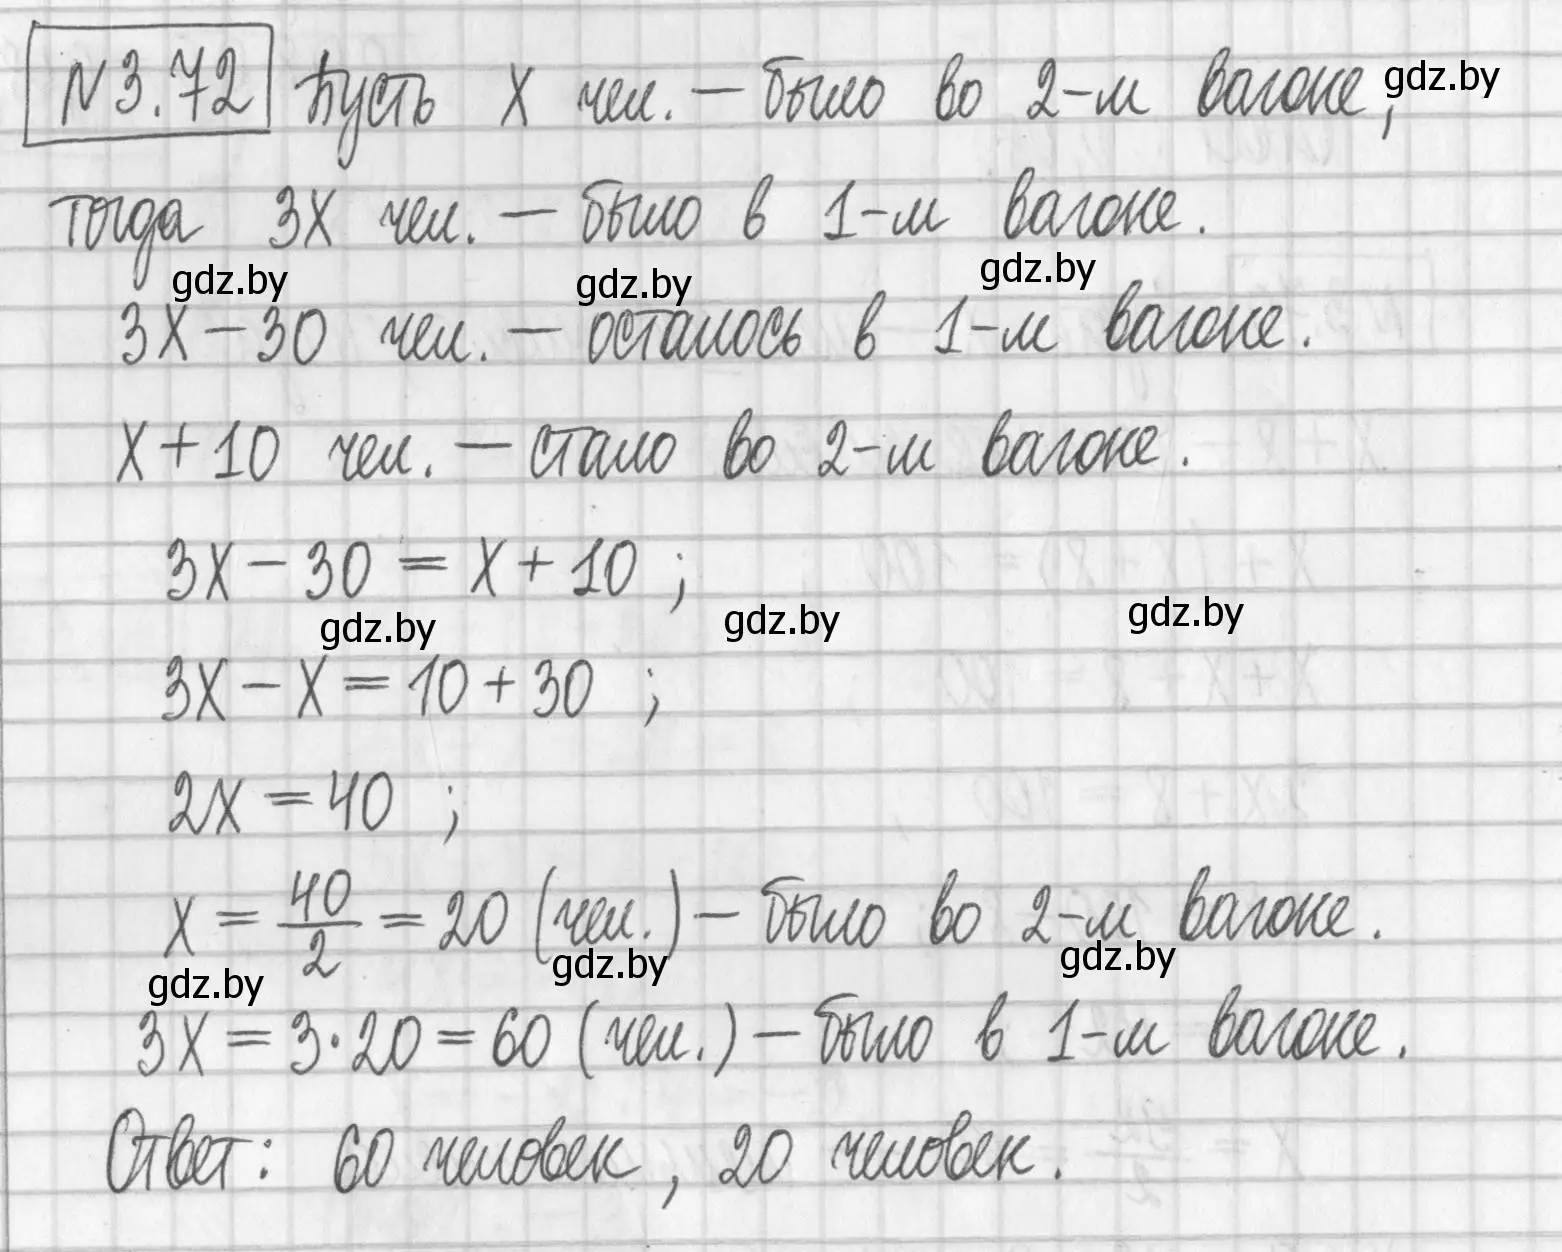 N 3.72 Пусть x чел. — было во 2-м вагоне, gdz.by
тогда 3x чел. — было в 1-м вагоне.
gdz.by gdz.by gdz.by
3x - 30 чел. — осталось в 1-м вагоне.
x + 10 чел. — стало во 2-м вагоне.
3x - 30 = x + 10 ;
gdz.by gdz.by gdz.by
3x - x = 10 + 30 ;
2x = 40 ;
x = 40/2 = 20 (чел.) — было во 2-м вагоне.
gdz.by gdz.by gdz.by
3x = 3·20 = 60 (чел.) — было в 1-м вагоне.
Ответ: 60 человек, 20 человек.